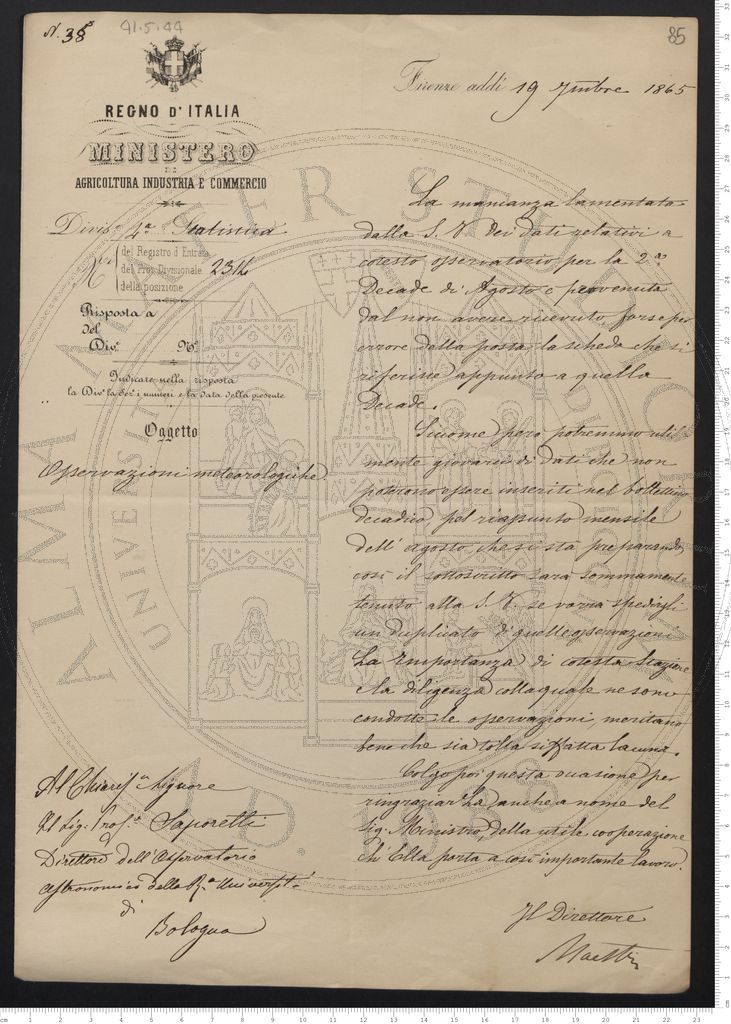 N. 38
41.5.44
85
REGNO D'ITALIA
MINISTERO
DI
AGRICOLTURA INDUSTRIA E COMMERCIO
Divis.e 4a Statistica
N.o
del Registro d'Entrata
del Prot. Divisionale 2314
della posizione
Risposta a
del
Div.e N.o
Indicare nella risposta
la Div.e la Sez.e i numeri e la data della presente
Oggetto
Osservazioni meteorologiche
Firenze addì 19 7mbre 1865
La mancanza lamentata
dalla S. V. dei dati relativi a
cotesto osservatorio per la 2.a
Decade di Agosto è provenuta
dal non avere ricevuto, forse per
errore della posta la scheda che si
riferisce appunto a quella
Decade.
Siccome però potremmo util-
mente giovarci di dati che non
poterono essere inseriti nel bollettino
decadico, pel riassunto mensile
dell' agosto che si sta preparando,
così il sottoscritto sarà sommamente
tenuto alla S. V. se vorrà spedirgli
un duplicato di quelle osservazioni.
La importanza di cotesta Stazione
e la diligenza colla quale ne sono
condotte le osservazioni, meritano
bene che sia tolta siffatta lacuna.
Colgo poi questa occasione per
ringraziarLa, anche a nome del
Sig. Ministro, della utile cooperazione
ch'Ella porta a così importante lavoro.
Il Direttore
Maestri
Al Chiariss.o Signore
Il Sig. Prof.e Saporetti
Direttore dell'Osservatorio
astronomico della R.a Università
di
Bologna
ALMA MATER STUDIORUM
A.D. 1088